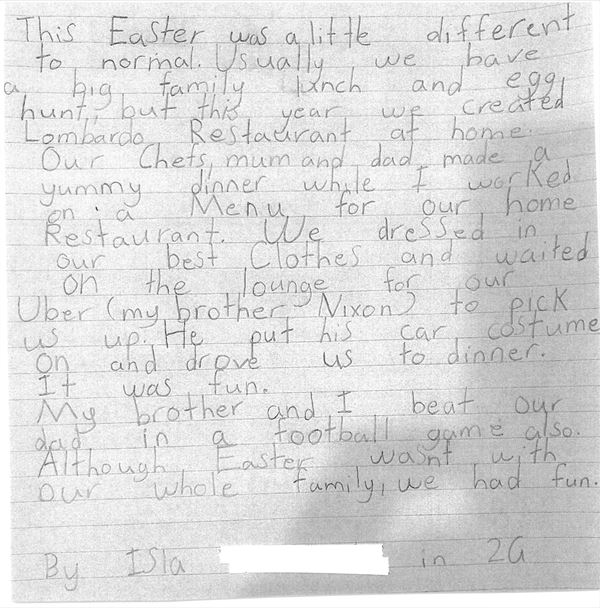 This Easter was a little different
to normal. Usually we have
a big family lunch and egg
hunt, but this year we created
Lombardo Restaurant at home.
Our Chefs, mum and dad made a
yummy dinner while I worked
on a Menu for our home
Restaurant. We dressed in
our best Clothes and waited
on the lounge for our
Uber (my brother Nixon) to pick
us up. He put his car costume
on and drove us to dinner.
It was fun.
My brother and I beat our
dad in a football game also.
Although Easter wasnt with
our whole family, we had fun.
By ISla in 2G